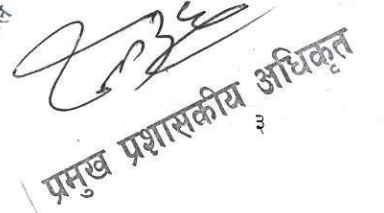 प्रमुख प्रशासकीय अधिकृत
३